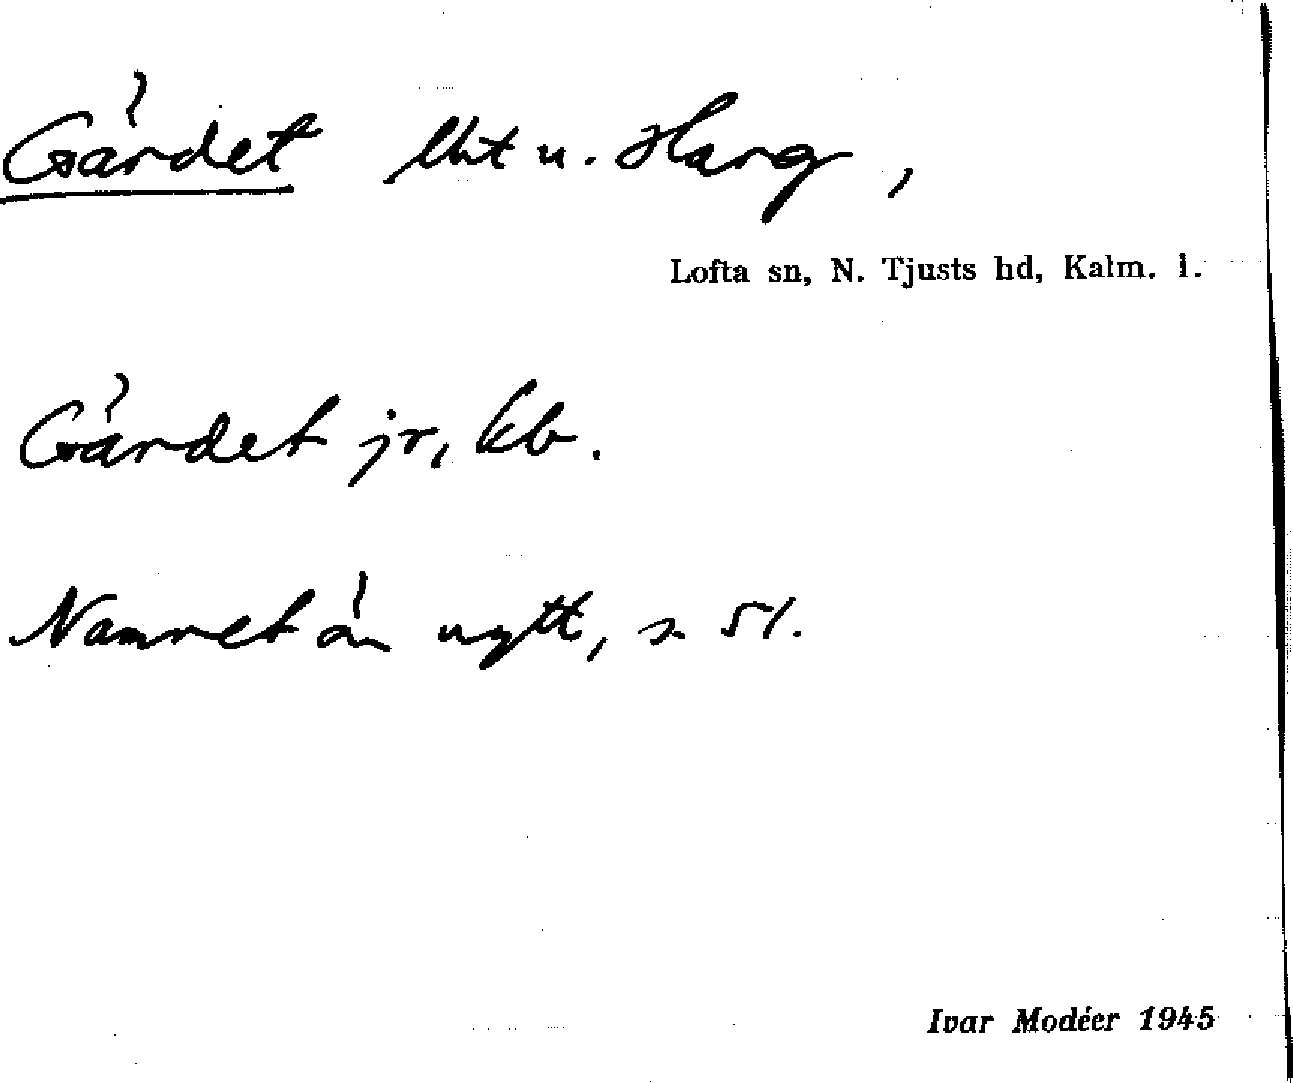 Gärdet lht u. Harg,
Lofta sn, N. Tjusts hd, Kalm. l.
Gärdet jr, kb.
Namnet är nytt, s. 51.
Ivar Modéer 1945